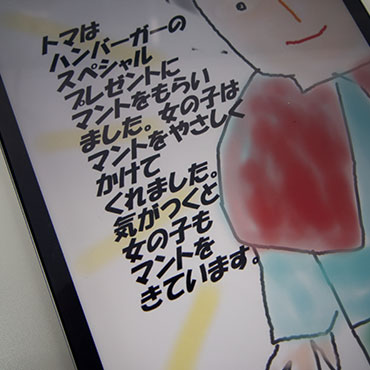 トマは
ハンバーガーの
スペシャル
プレゼントに
マントをもらい
ました。女の子は
マントをやさしく
かけて
くれました。
気がつくと
女の子も
マントを
きています。